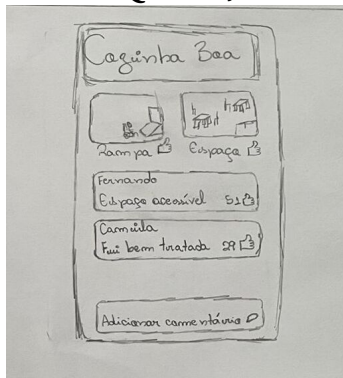 Cozinha Boa
Rampa
Espaço
Fernando
Espaço acessível 51
Camila
Fui bem tratada 29
Adicionar comentário